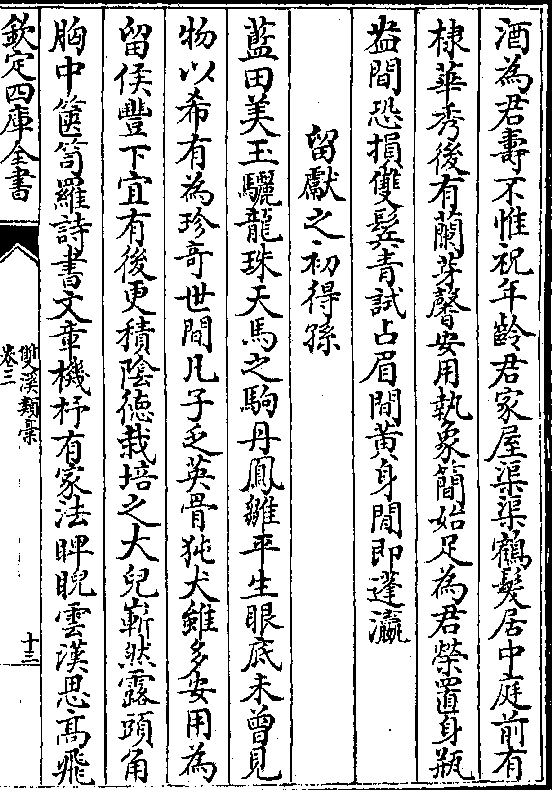 酒為君壽不惟祝年齡君家屋渠渠鶴髮居中庭前有
棣華秀後有蘭芽馨安用執象簡始足為君榮置身瓶
盎間恐損雙鬂青試占眉間黄身閒即蓬瀛
留獻之初得孫
藍田美玉驪龍珠天馬之駒丹鳳雛平生眼底未曾見
物以希有為珍奇世間凡子乏英骨㹠犬雖多安用為
留侯豐下宜有後更積隂徳栽培之大兒嶄然露頭角
胸中篋笥羅詩書文章機杼有家法睥睨雲漢思髙飛
欽定四庫全書
雙溪類槀
卷三
十三